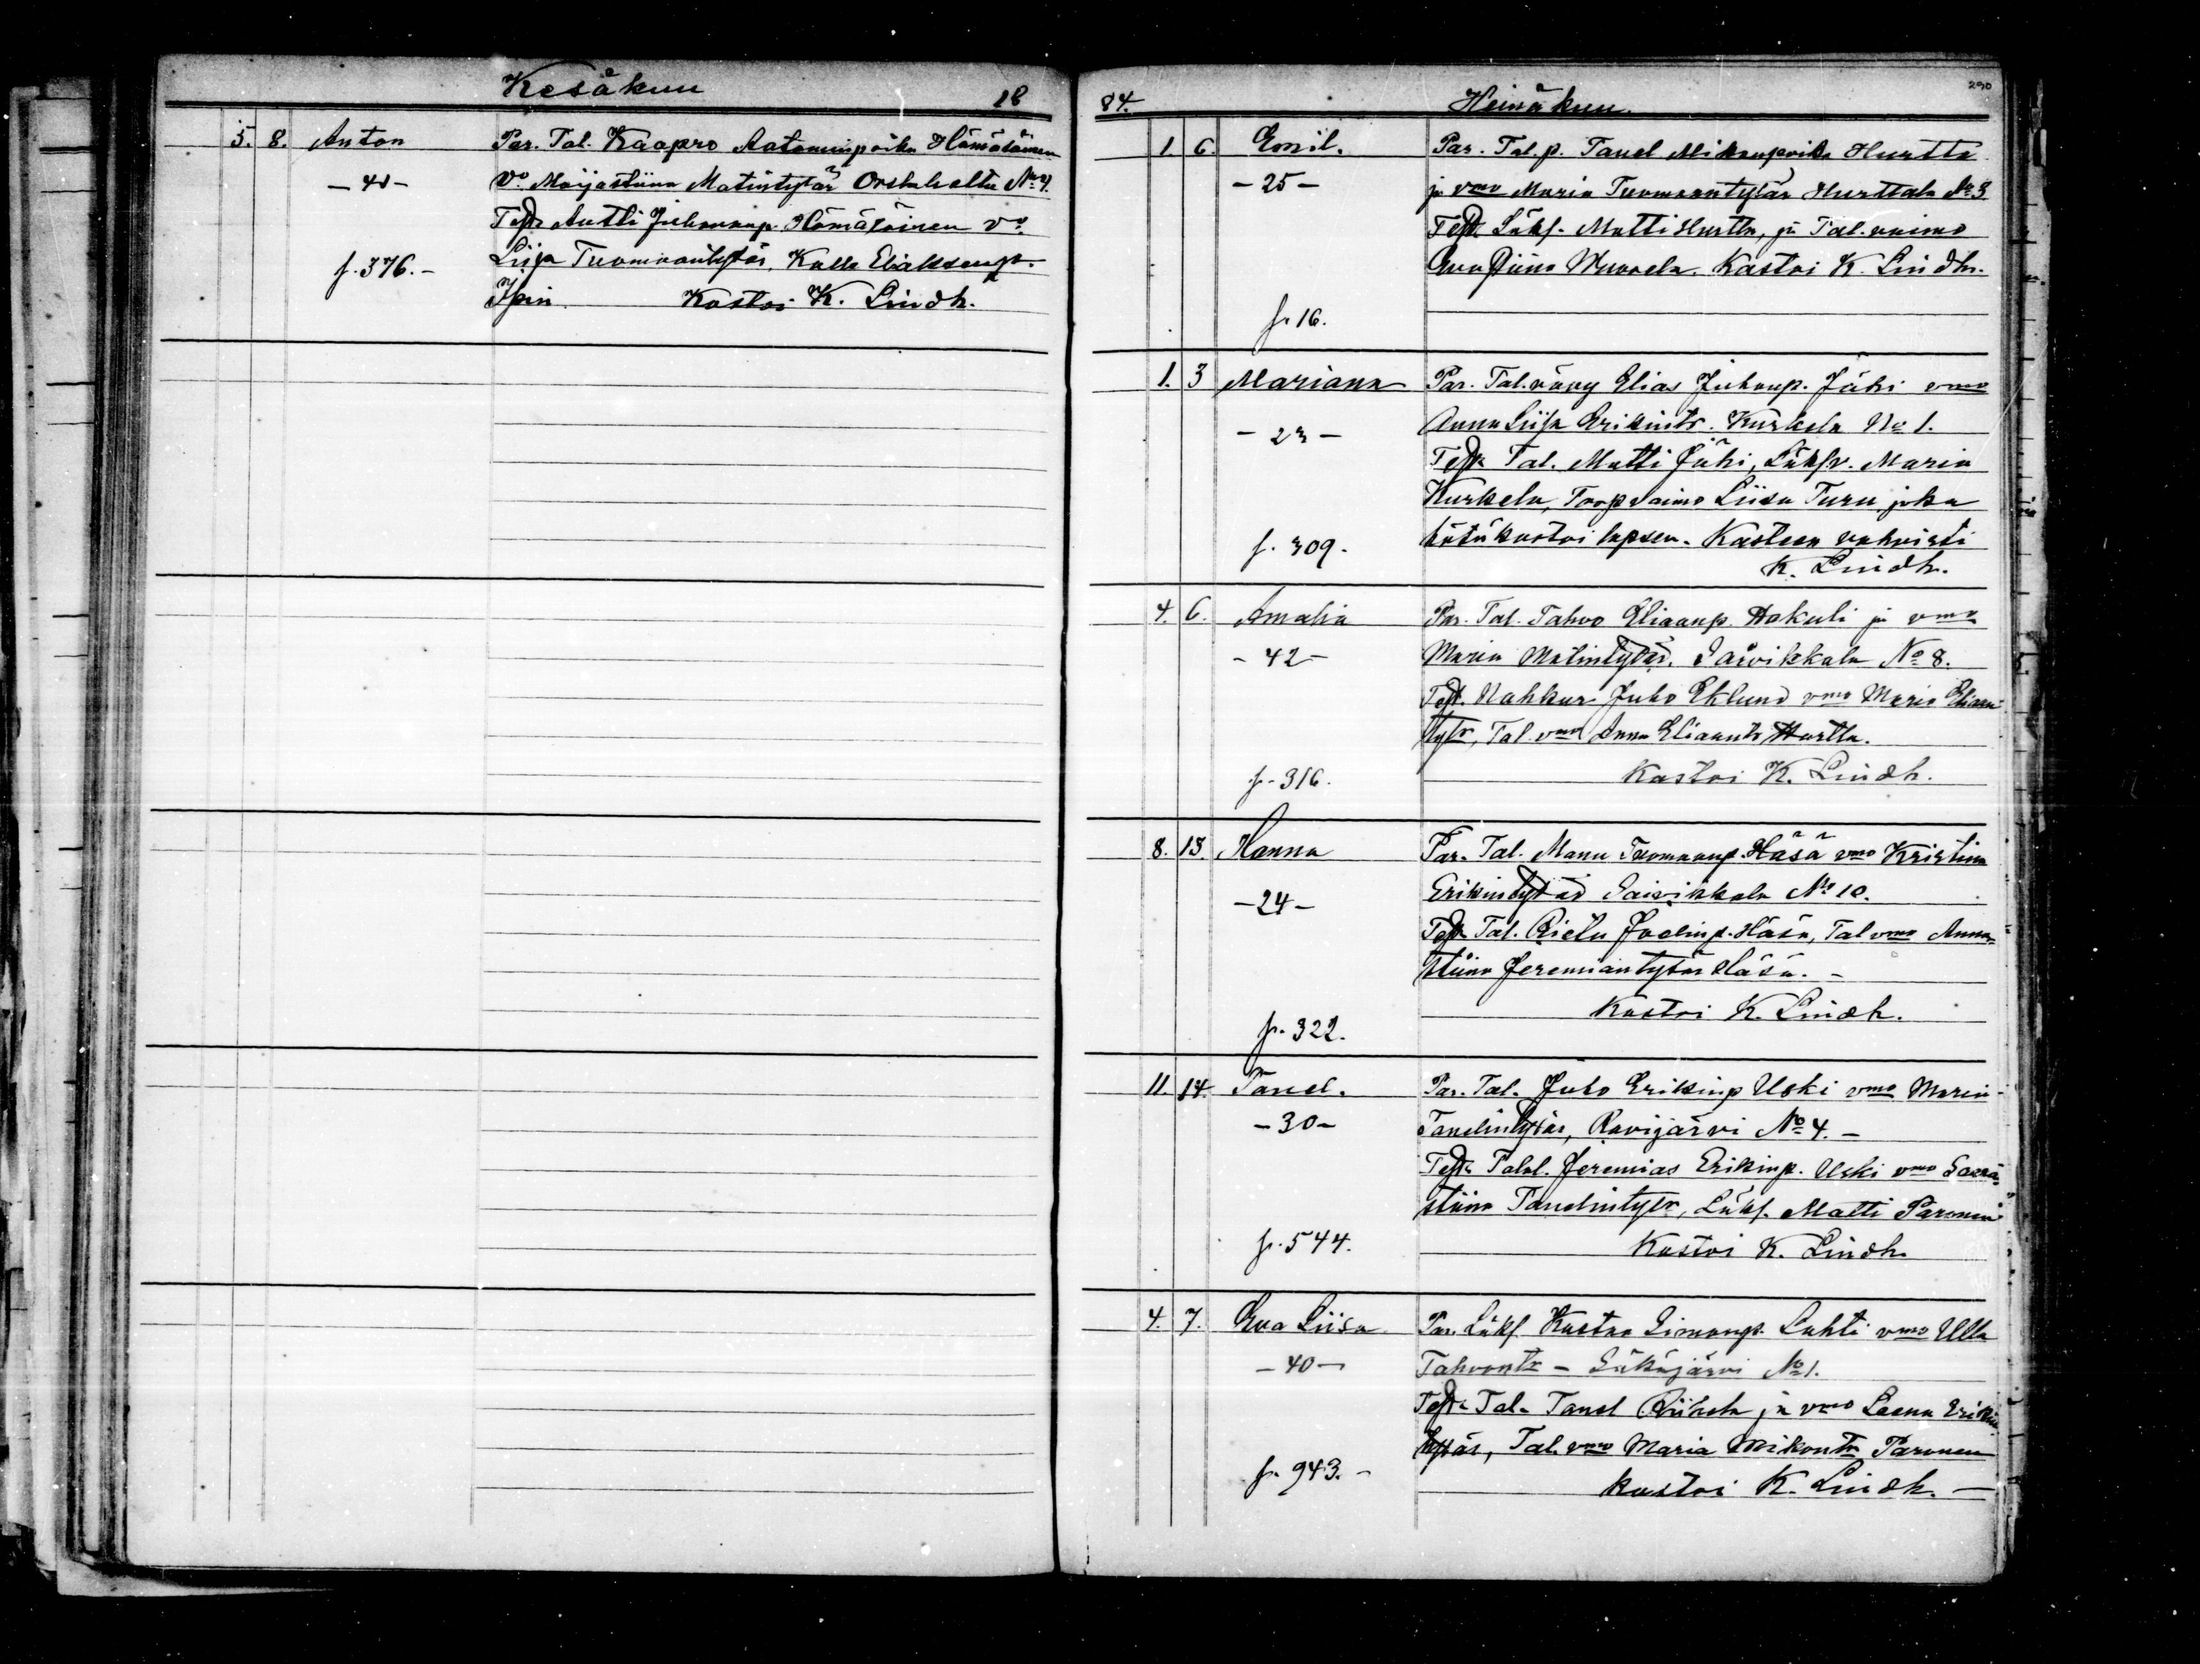 Kesäkuu
18
5. 8. Anton Par. Tal. Kaapro Aatominpoika Hämäläinen
Vo. Maijastiina Matintytär
Test. Antti Juhonanp. Hämäläinen vo.
f. 376. - Liisa Tuomaantytär, Kalle
Kastoi K. Lindh.
84.
Heinäkuu.
290
1. 6. Emil. Par. Tal. p. Tanel Mikonpoika Hurtta
- 25 - ja vmo Maria Tuomaantytär Hurttala No 3
Test. Lükf. Matti Hurtta, ja Tal. vaimo
Eva Stiina Kastoi K. Lindh.
f. 16.
1. 3 Mariana Par. Tal. vävy Elias Juhonp. Jähi vmo
- 23 - Anna Liisa Erikintr. Kurkela No 1.
Test. Tal. Matti Jähi, Maria
Kurkela, Torpvaimo Liisa Turu, joka
f. 309. hätäkastoi lapsen. Kasteen vahvisti
K. Lindh.
4. 6. Amalia Par. Tal. Tahvo Eliaanp. Hakuli ja vmo
- 42 - Maria Matintytär, Säivikkala No 8.
Test. Nahkur Juho Eklund vmo Maria Eliaan
tytr, Tal. vmo Anna Eliaantr Hurtta.
f. 316. Kastoi K. Lindh.
8. 13. Hanna Par. Tal. Manu Tuomaanp. Häsä vmo Kristiina
- 24 - Erikintytär Säivikkala No 10.
Test. Tal. Joelinp. Häsä, Tal vmo Anna-
stiina Jeremiantytär Häsä. -
f. 322. Kastoi K. Lindh.
11. 14. Tanel. Par. Tal. Juho Erikinp Uski vmo Maria
- 30 - Tanelintytär, Ravijärvi No 4. -
Test. Talol. Jeremias Erikinp. Uski vmo Saara-
stiina Tanelintytr, Lükf. Matti Paronen
f. 544. Kastoi K. Lindh.
4. 7. Eva Liisa Par. Lükf. Kustaa Simonp. Lahti vmo Ulla
- 40 - Tahvontr - Säkäjärvi No 1.
Test. Tal. Tanel ja vmo Leena Erikin
tytär, Tal. vmo Maria Mikontr Paronen
f. 943. - Kastoi K. Lindh. -